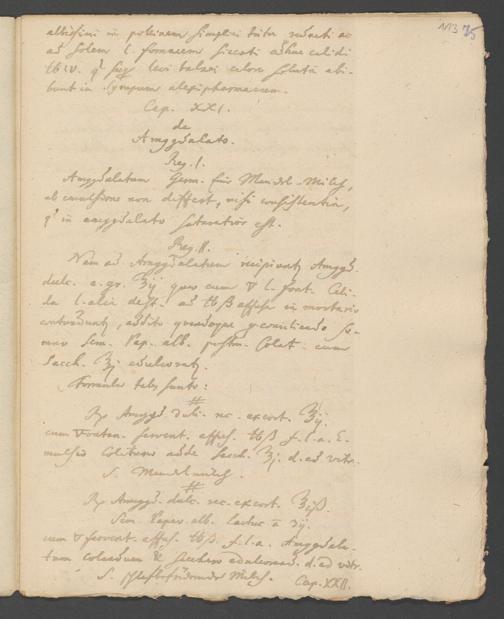 albissimi in pollinem simplici trit. redacti ac
ad Solem l. fornacem siccati adhuc calidi
℔ IV. leni balnei calore soluta abi-
bunt in Syrupum alexipharmacum.
Cap. XXI.
de
Amygdalato.
Reg. I.
Amygdalatum Germ. für Mandel-Milch,
ab emulsione non differt, nisi consistentia,
in amygdalato saturatior est.
Reg. II.
Nam ad Amygdalatum recipiunt Amygd.
dulc. e. gr. ℥ij quas cum ▽ l. font. Cali-
da l. alia dest. ad ℔ß affusa in mortario
contundunt, addito quandoque se-
mine Sem. Pap. alb. Colat. cum
Sacch. ℥j edulcorat.
Formulae tales sunt:
#
Rp Amygd. dulc. rec. excort. ℥ij.
cum ▽ fontan. fervent. affus. ℔ß f. l. a. E-
mulsio Colaturae adde Sacch. ℥j. d. ad vitr.
S. Mandelmilch.
#
Rp Amygd. dulc. rec. excort. ℥iß.
Sem. Papav. alb. Lactuc. a ʒij.
cum ▽ fervent. affus. ℔ß f. l. a. Amygdala-
tum colandum & Saccharo edulcorand. d. ad vitr.
S. Milch. Cap. XXII.
113 75